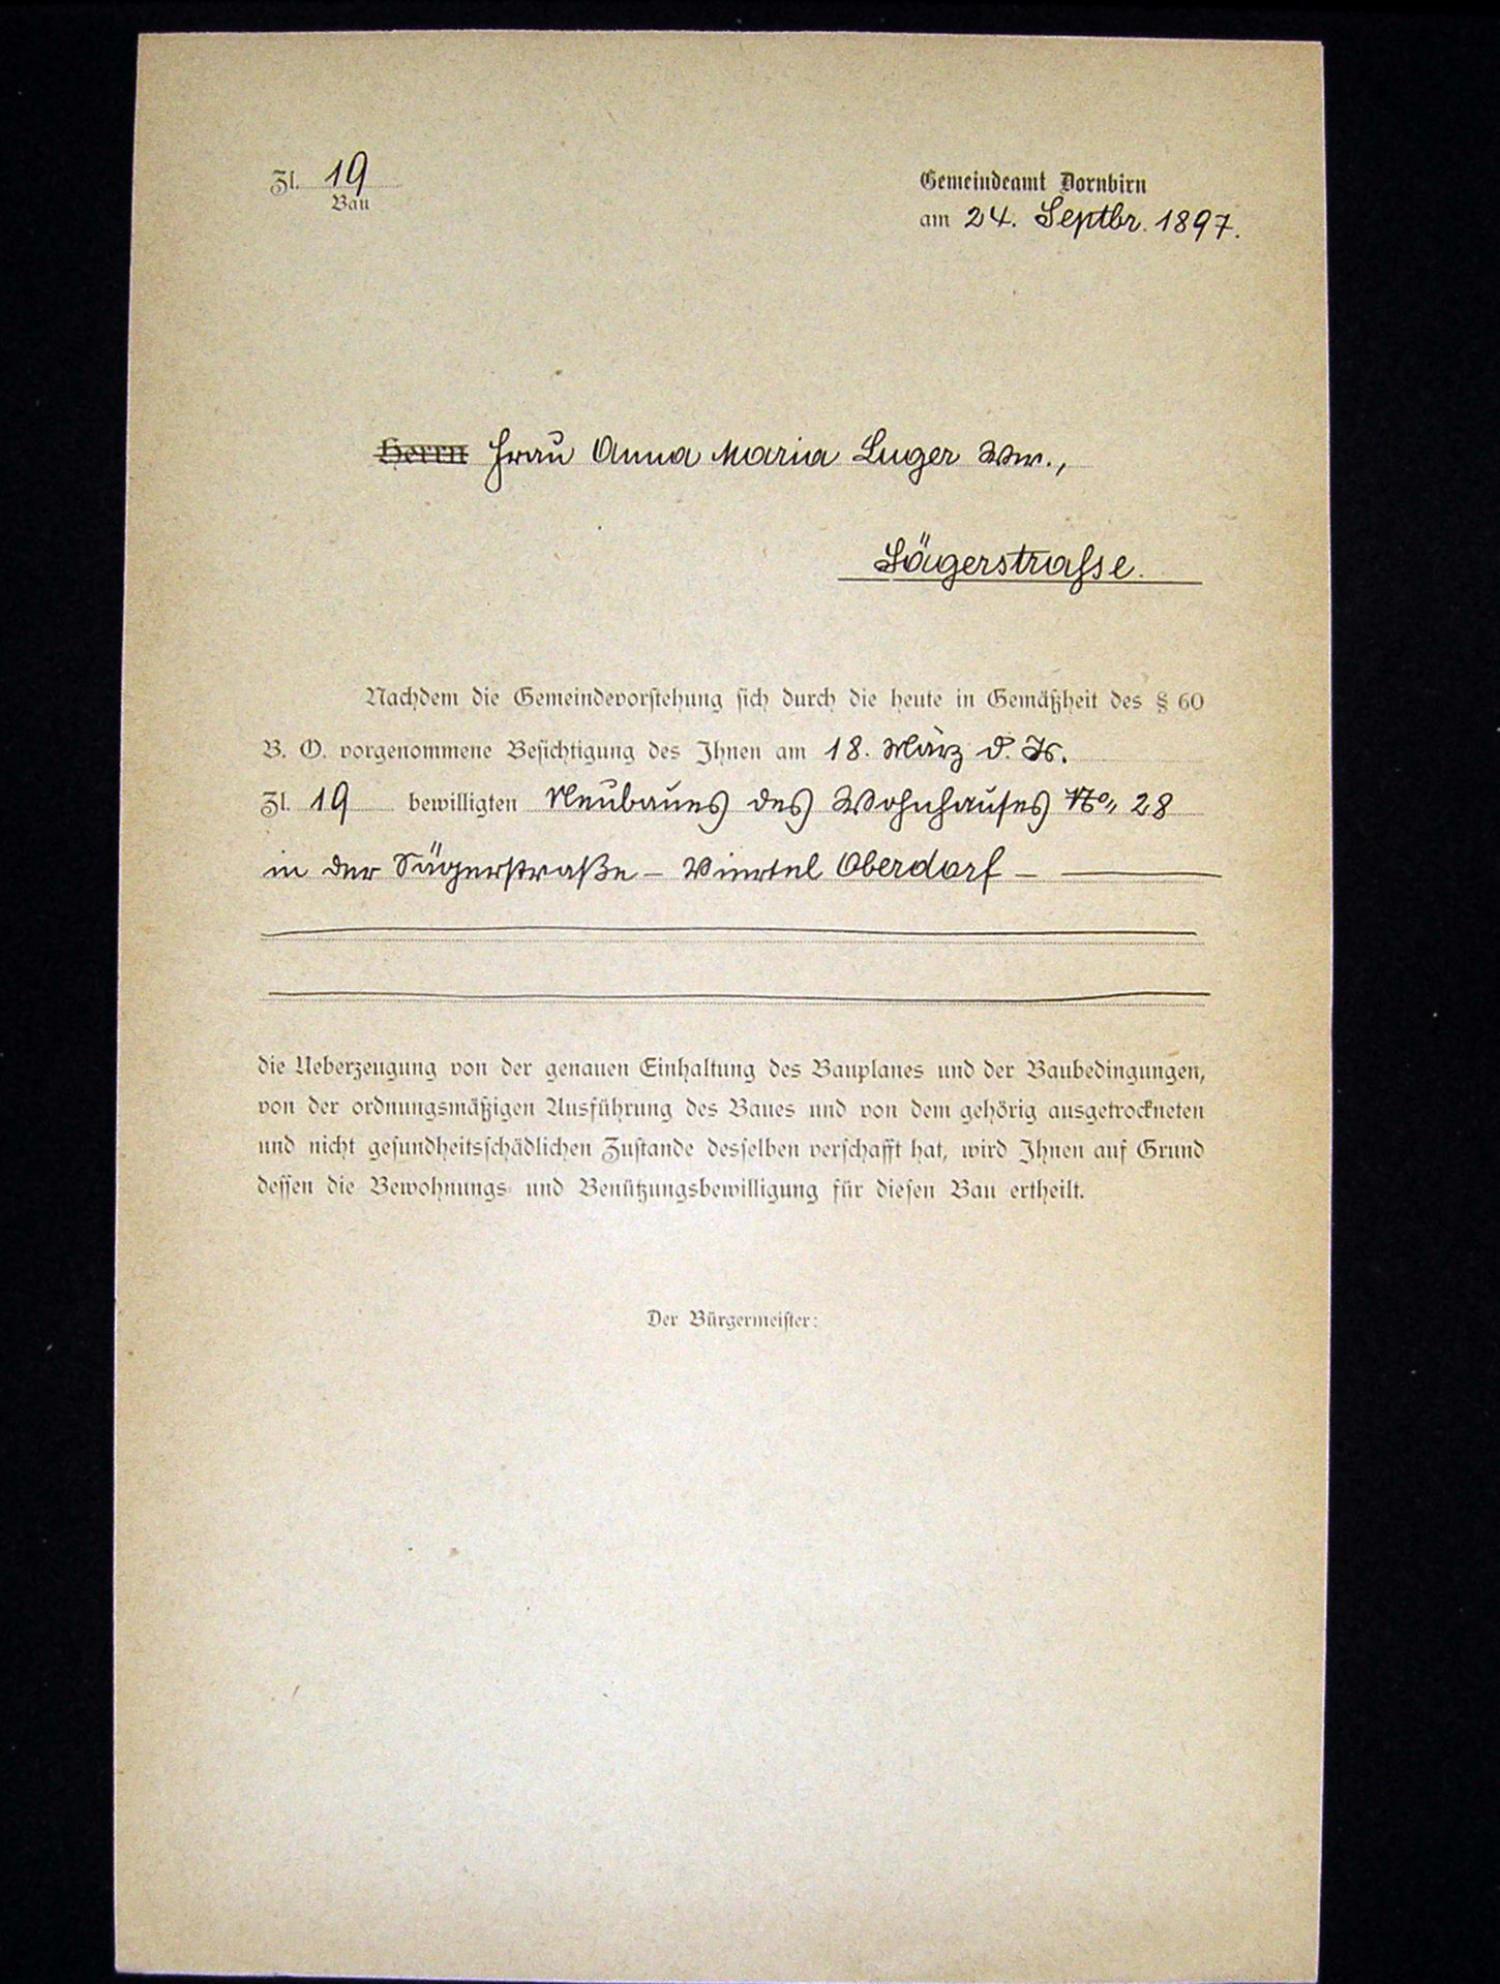 Zl. 19
Bau
Gemeindeamt Dornbirn
am 24. Septbr. 1897.
Herrn Frau Anna Maria Luger Ww.,
Sägerstrasse.
Nachdem die Gemeindevorstehung sich durch die heute in Gemäßheit des § 60
B. O. vorgenommene Besichtigung des Ihnen am 18. März d. Js.
Zl. 19 bewilligten Neubaues des Wohnhauses No. 28
in der Sägerstraße – Viertel Oberdorf –
die Ueberzeugung von der genauen Einhaltung des Bauplanes und der Baubedingungen,
von der ordnungsmäßigen Ausführung des Baues und von dem gehörig ausgetrockneten
und nicht gesundheitsschädlichen Zustande desselben verschafft hat, wird Ihnen auf Grund
dessen die Bewohnungs- und Benützungsbewilligung für diesen Bau ertheilt.
Der Bürgermeister: